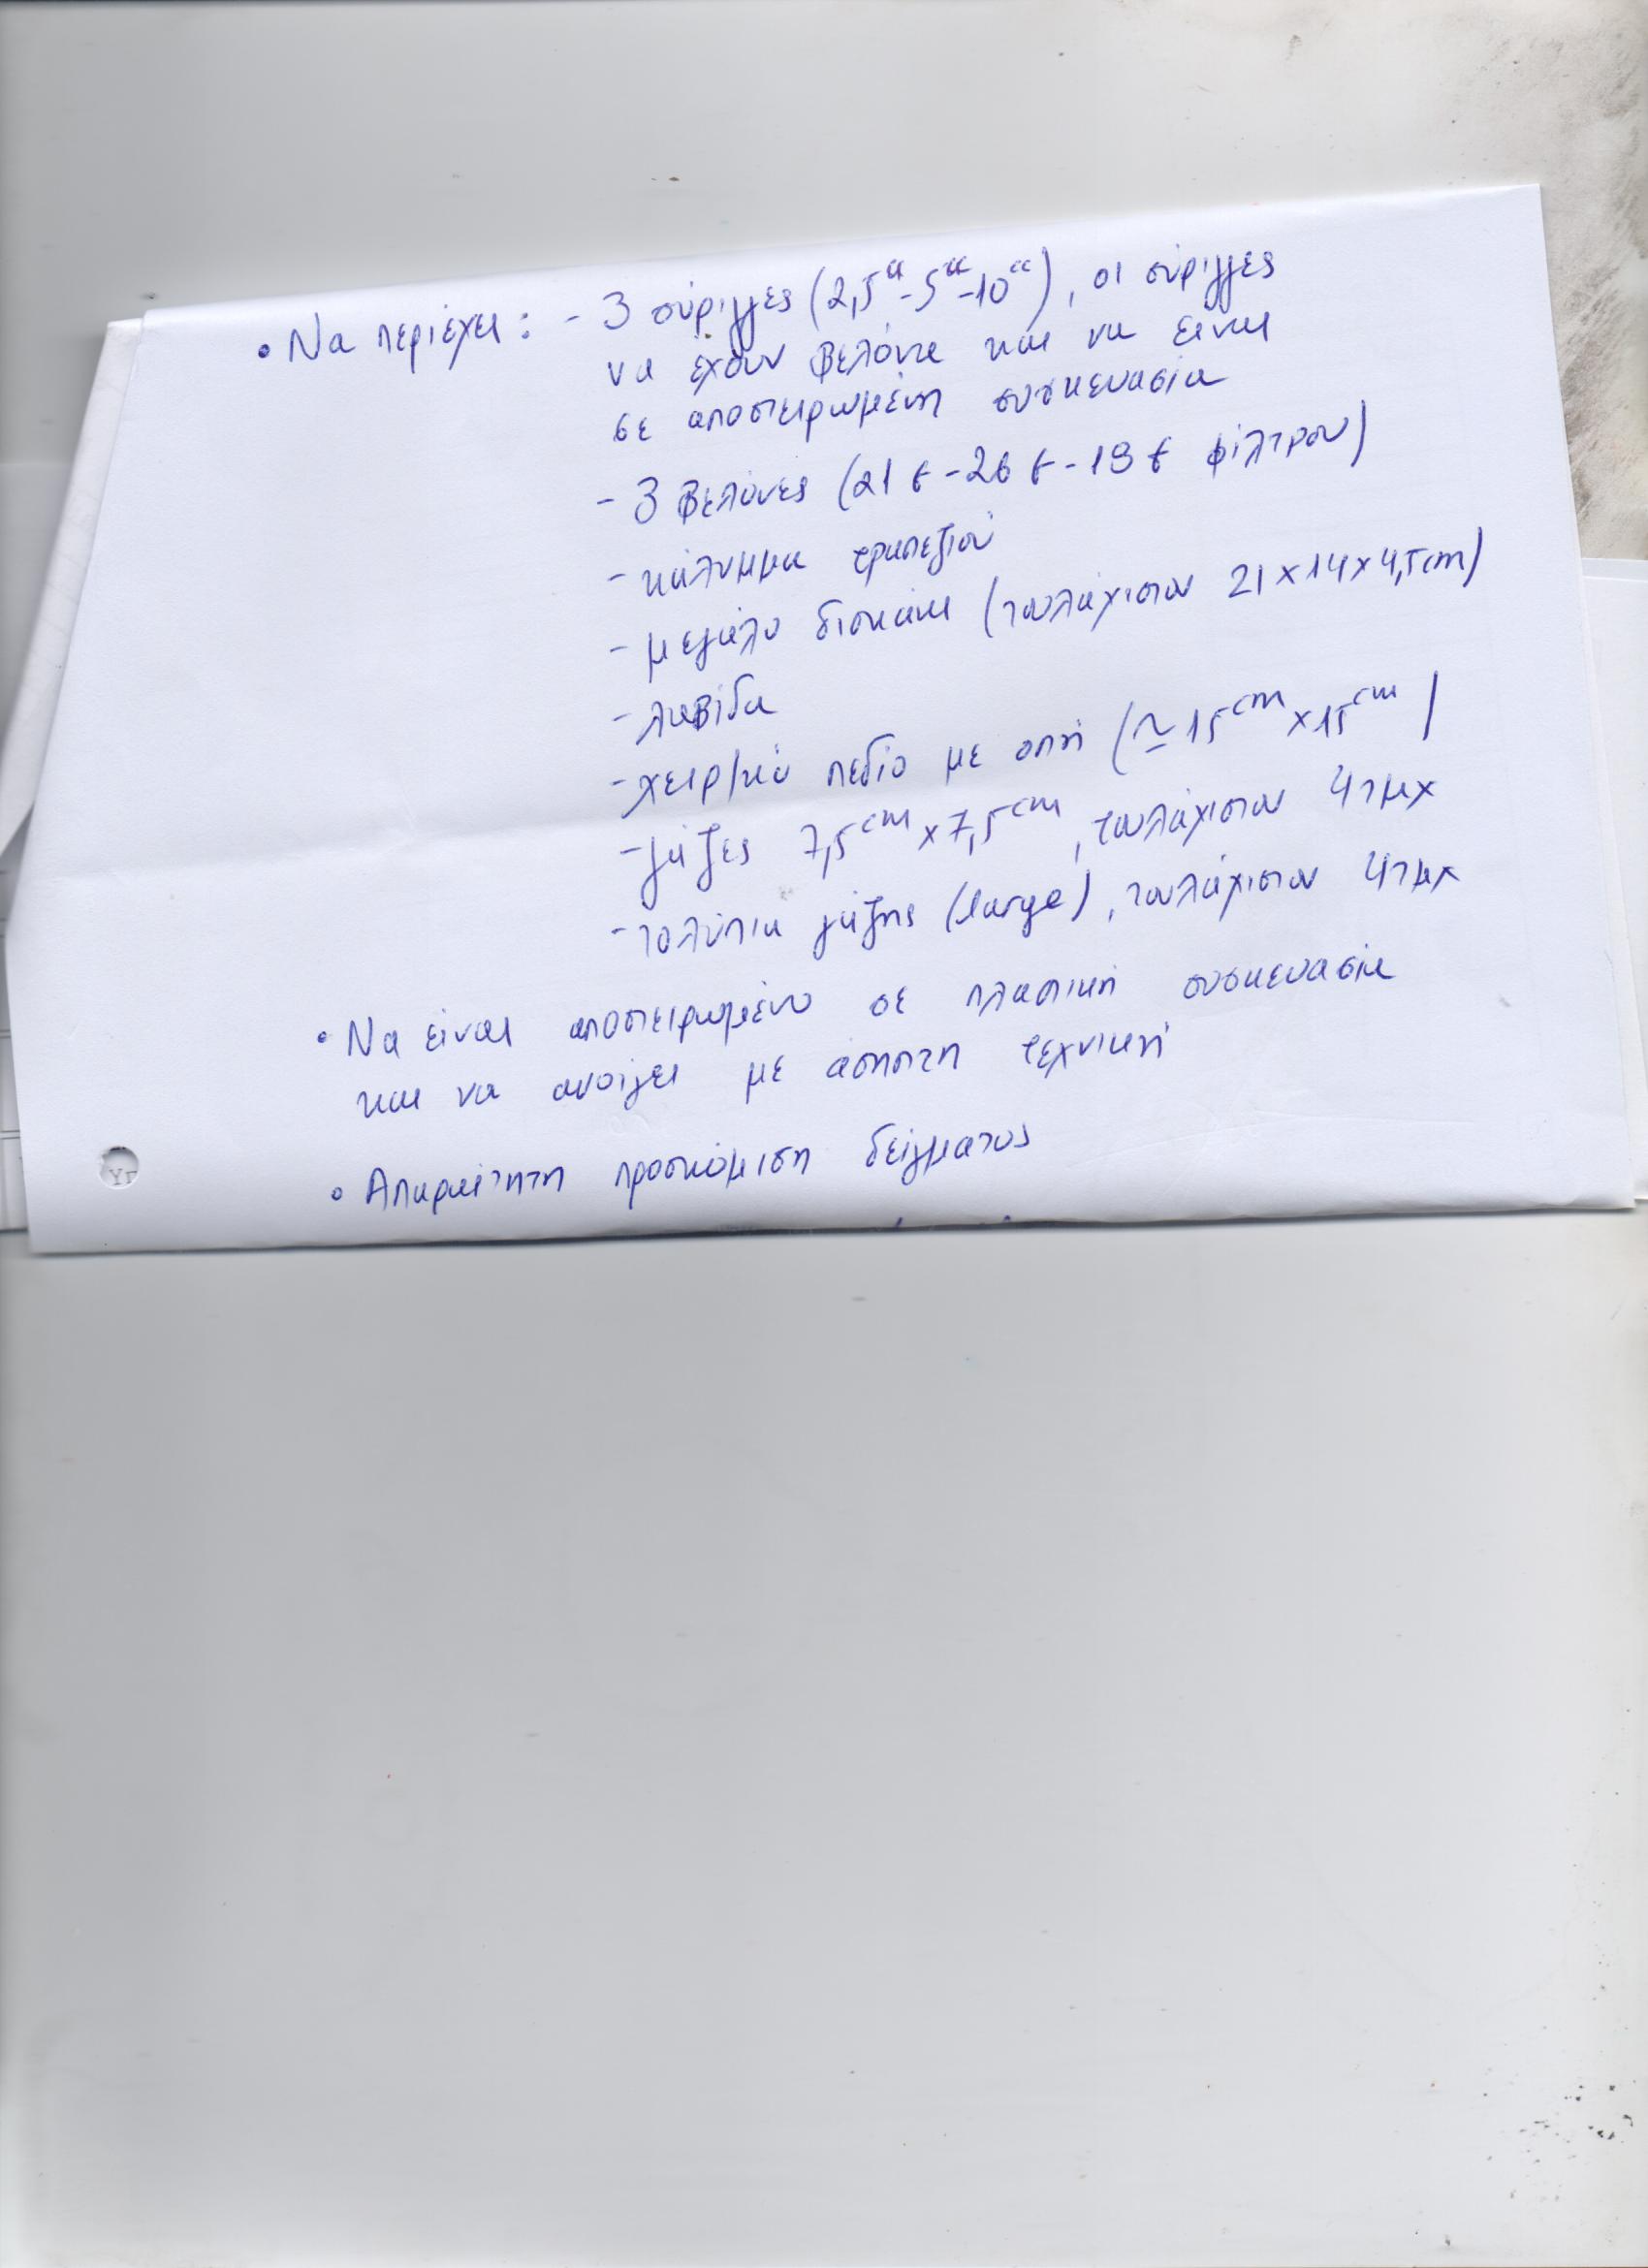 • Να περιέχει: - 3 σύριγγες (2,5cc - 5cc - 10cc), οι σύριγγες
να έχουν βελόνα και να είναι
σε αποστειρωμένη συσκευασία
- 3 βελόνες (21G - 26G - 19G φίλτρου)
- κάλυμμα τραπεζιού
- μεγάλο δισκάκι (τουλάχιστον 21x14x4,5cm)
- λαβίδα
- χειρ/κό πεδίο με οπή (≃15cm x15cm)
- γάζες 7,5cm x7,5cm, τουλάχιστον 4τμχ
- τολύπια γάζης (large), τουλάχιστον 4τμχ
• Να είναι αποστειρωμένο σε πλαστική συσκευασία
και να ανοίγει με άσηπτη τεχνική
• Απαραίτητη προσκόμιση δείγματος